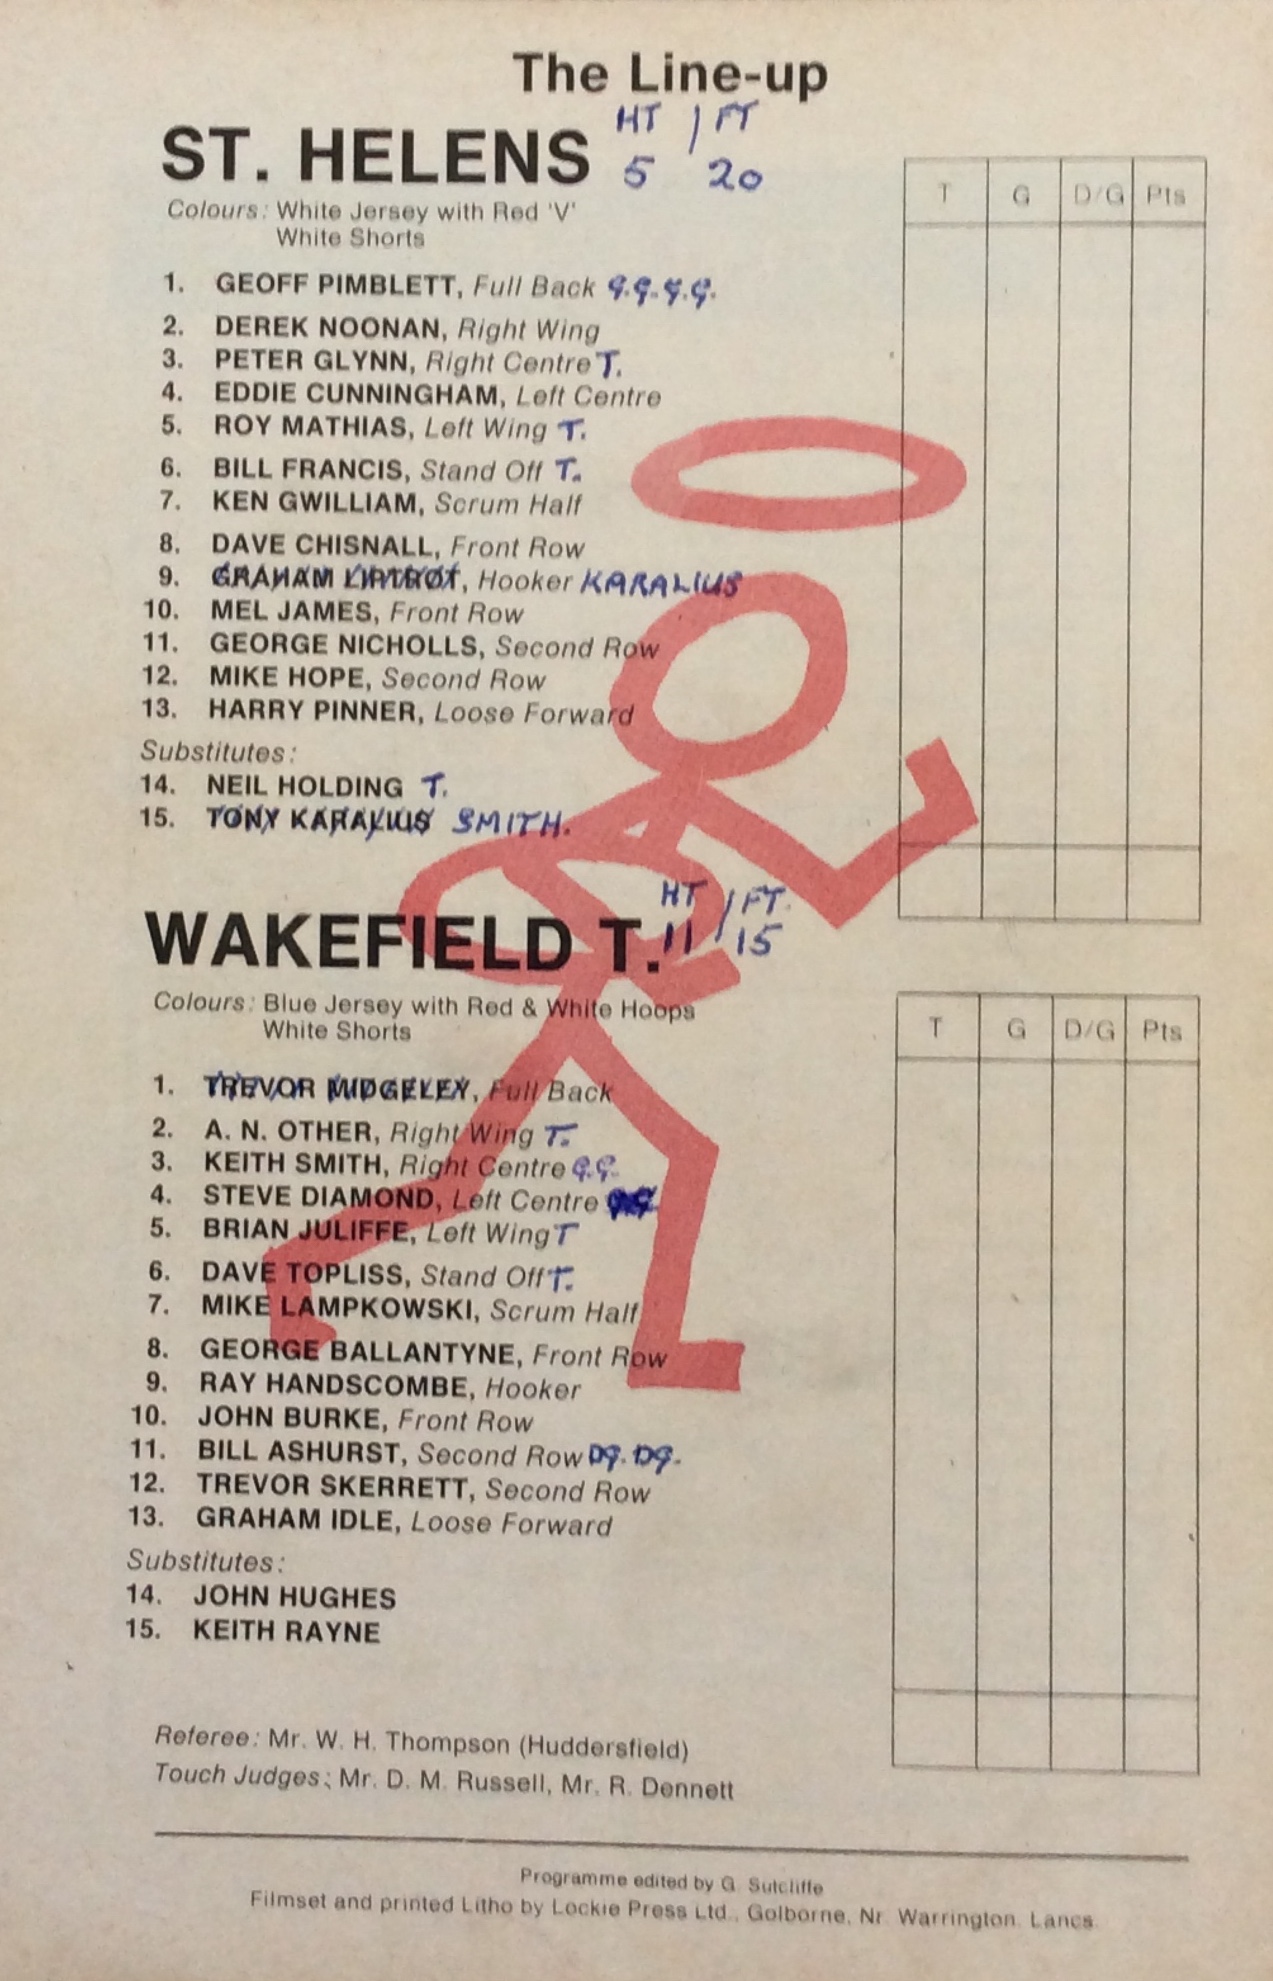 The Line-up
ST. HELENS HT / FT
5 20
Colours: White Jersey with Red 'V'
White Shorts
T G D/G Pts
1. GEOFF PIMBLETT, Full Back G.G.G.G.
2. DEREK NOONAN, Right Wing
3. PETER GLYNN, Right Centre T.
4. EDDIE CUNNINGHAM, Left Centre
5. ROY MATHIAS, Left Wing T.
6. BILL FRANCIS, Stand Off T.
7. KEN GWILLIAM, Scrum Half
8. DAVE CHISNALL, Front Row
9. GRAHAM LIPTROT, Hooker KARALIUS
10. MEL JAMES, Front Row
11. GEORGE NICHOLLS, Second Row
12. MIKE HOPE, Second Row
13. HARRY PINNER, Loose Forward
Substitutes:
14. NEIL HOLDING T.
15. TONY KARALIUS SMITH.
WAKEFIELD T. HT / FT.
11 15
Colours: Blue Jersey with Red & White Hoops
White Shorts
T G D/G Pts
1. TREVOR MIDGELEY, Full Back
2. A. N. OTHER, Right Wing T.
3. KEITH SMITH, Right Centre G.G.
4. STEVE DIAMOND, Left Centre
5. BRIAN JULIFFE, Left Wing T
6. DAVE TOPLISS, Stand Off T.
7. MIKE LAMPKOWSKI, Scrum Half
8. GEORGE BALLANTYNE, Front Row
9. RAY HANDSCOMBE, Hooker
10. JOHN BURKE, Front Row
11. BILL ASHURST, Second Row DG. DG.
12. TREVOR SKERRETT, Second Row
13. GRAHAM IDLE, Loose Forward
Substitutes:
14. JOHN HUGHES
15. KEITH RAYNE
Referee: Mr. W. H. Thompson (Huddersfield)
Touch Judges: Mr. D. M. Russell, Mr. R. Dennett
Programme edited by G. Sutcliffe
Filmset and printed Litho by Lockie Press Ltd., Golborne, Nr. Warrington. Lancs.